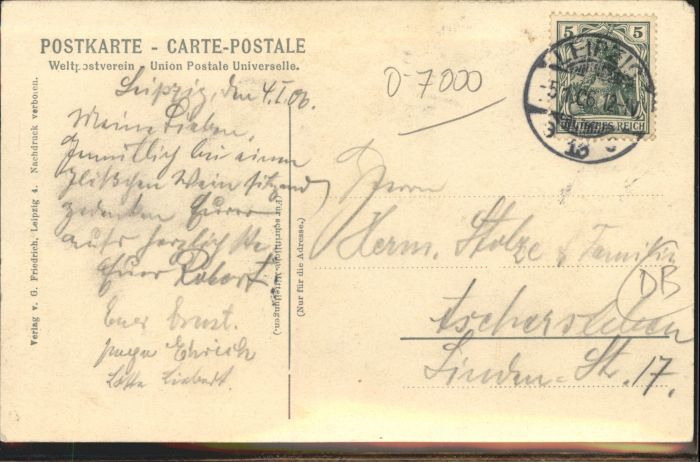 POSTKARTE - CARTE-POSTALE
Weltpostverein - Union Postale Universelle.
0-7000
5 5
LEIPZIG
-5.1.06. 12-1V
13
DEUTSCHES REICH
Leipzig, den 4.I.06.
Meine Lieben,
Gemütlich bei einem
Wein sitzend
gedenken Eurer
aufs herzlichste
Euer Robert.
Euer Ernst.
Ehrich
Lotte Liebert.
Herrn
Herm. Stolze & Familie
DB
Aschersleben
Linden-Str. 17.
Für schriftliche Mitteilungen.)
(Nur für die Adresse.)
Verlag v. G. Friedrich, Leipzig 4. Nachdruck verboten.